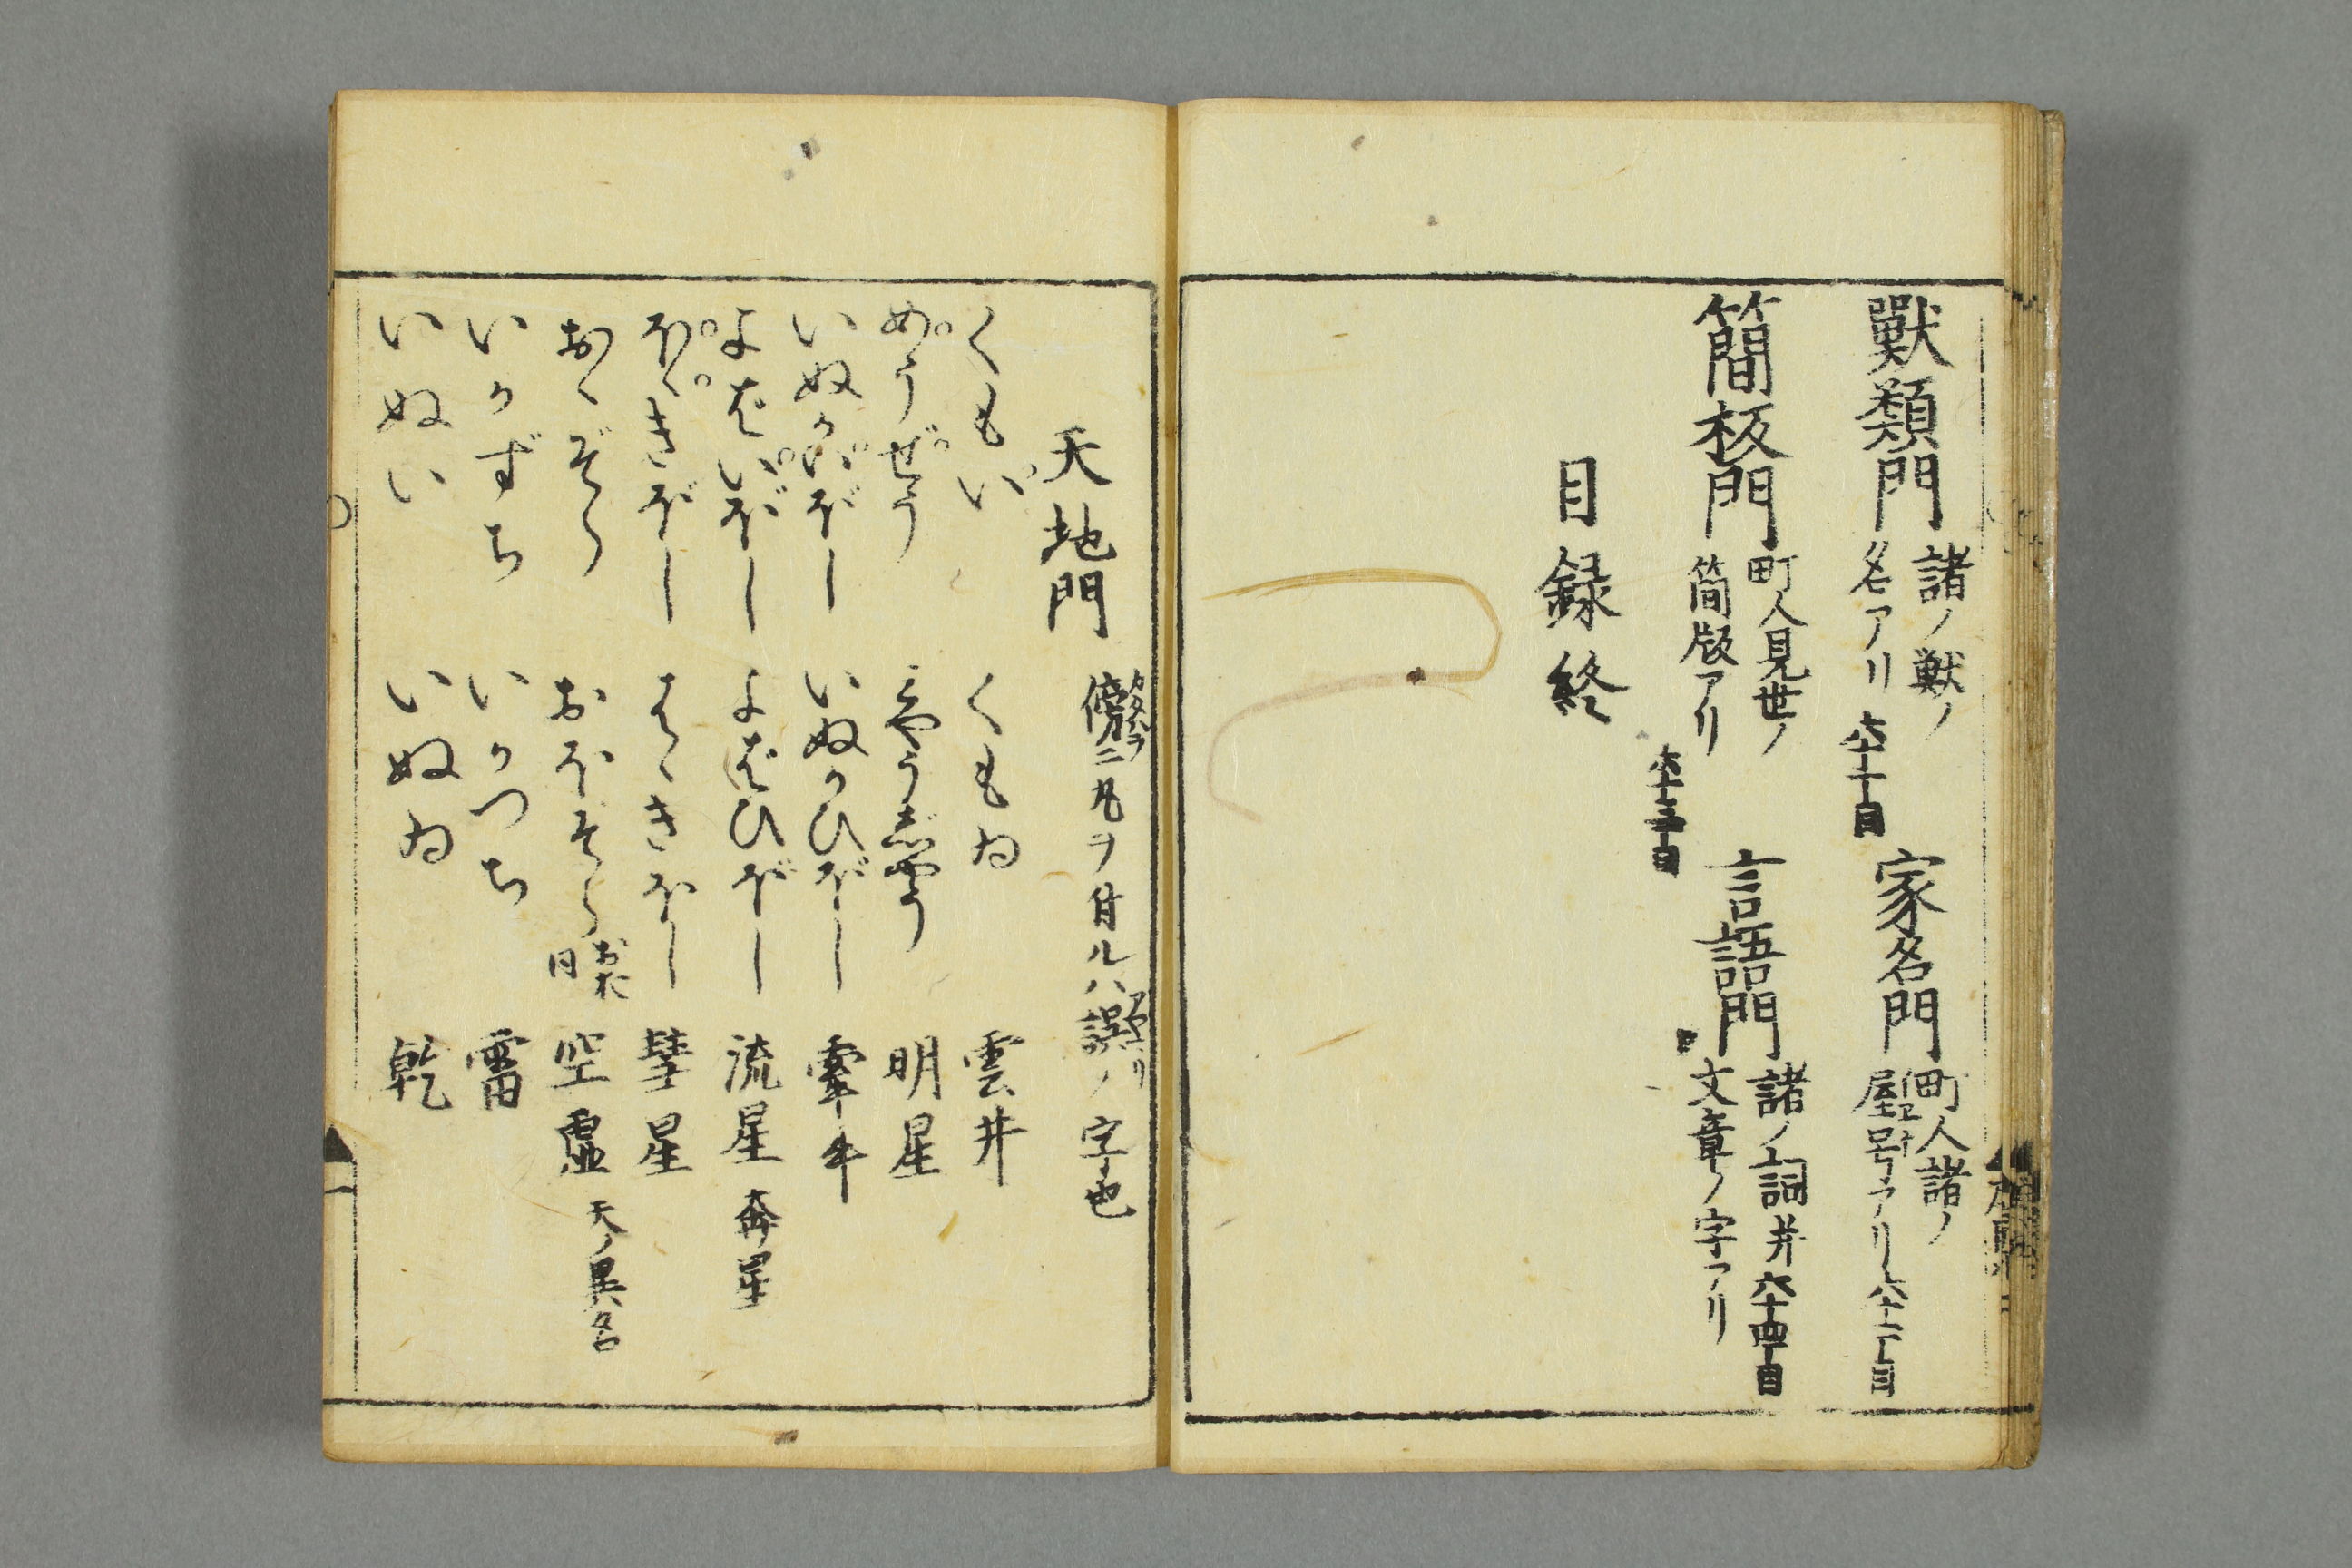 獸類門 諸ノ獣ノ名アリ 六十一丁目 家名門 町人諸ノ屋号アリ 六十二丁目
簡板門 町人見世ノ簡版アリ 六十三丁目 言語門 諸ノ詞并文章ノ字アリ 六十四丁目
目録終
天地門 傍ニ丸ヲ付ルハ誤ノ字也
くもい くもゐ 雲井
めうぜう みやうじやう 明星
いぬかいぼし いぬかひぼし 牽牛
よばいぼし よばひぼし 流星 奔星
ほゝきぼし はゝきぼし 彗星
おゝぞら おほそら 空虚 天ノ異名
いかずち いかつち 雷
いぬい いぬゐ 乾